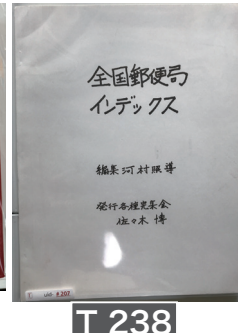 全国郵便局
インデックス
編集 河村照導
発行 各種完集会
佐々木 博
T 238